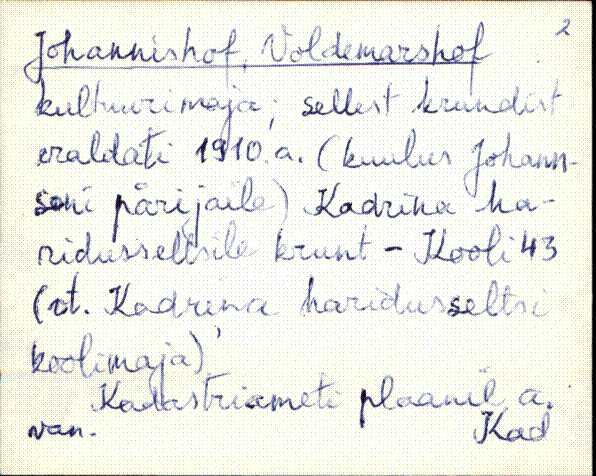 2
Johannishof, Voldemarshof
kultuurimaja; sellest krundist
eraldati 1910.a. (kuulus Johann-
seni pärijaile) Kadrina ha-
ridusseltsile krunt - Kooli 43
(vt. Kadrina haridusseltsi
koolimaja),
Kadastriameti plaanil a.
van. Kad